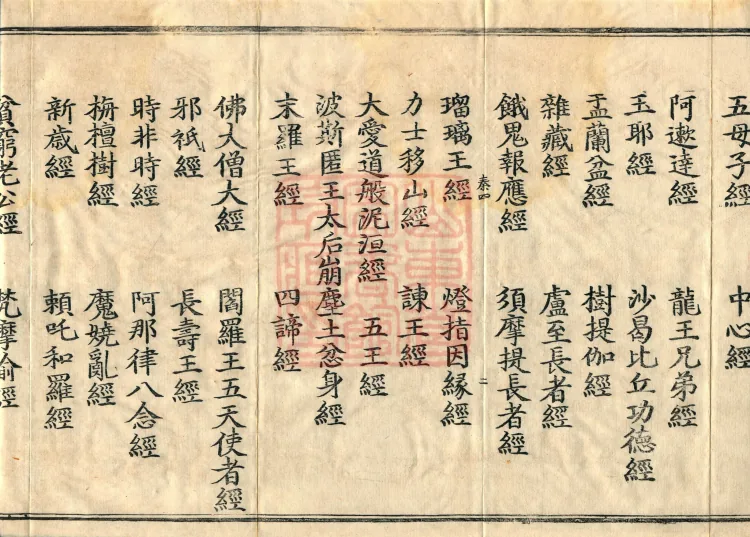 五母子經　中心經
阿遬達經　龍王兄弟經
玉耶經　沙曷比丘功德經
盂蘭盆經　樹提伽經
雜藏經　盧至長者經
餓鬼報應經　須摩提長者經
二
瑠璃王經　燈指因縁經
力士移山經　諫王經
大愛道般泥洹經　五王經
波斯匿王太后崩塵土坌身經
末羅王經　四諦經
佛大僧大經　閻羅王五天使者經
邪祇經　長壽王經
時非時經　阿那律八念經
栴檀樹經　魔嬈亂經
新歲經　頼吒和羅經
貧窮老公經　梵摩喻經